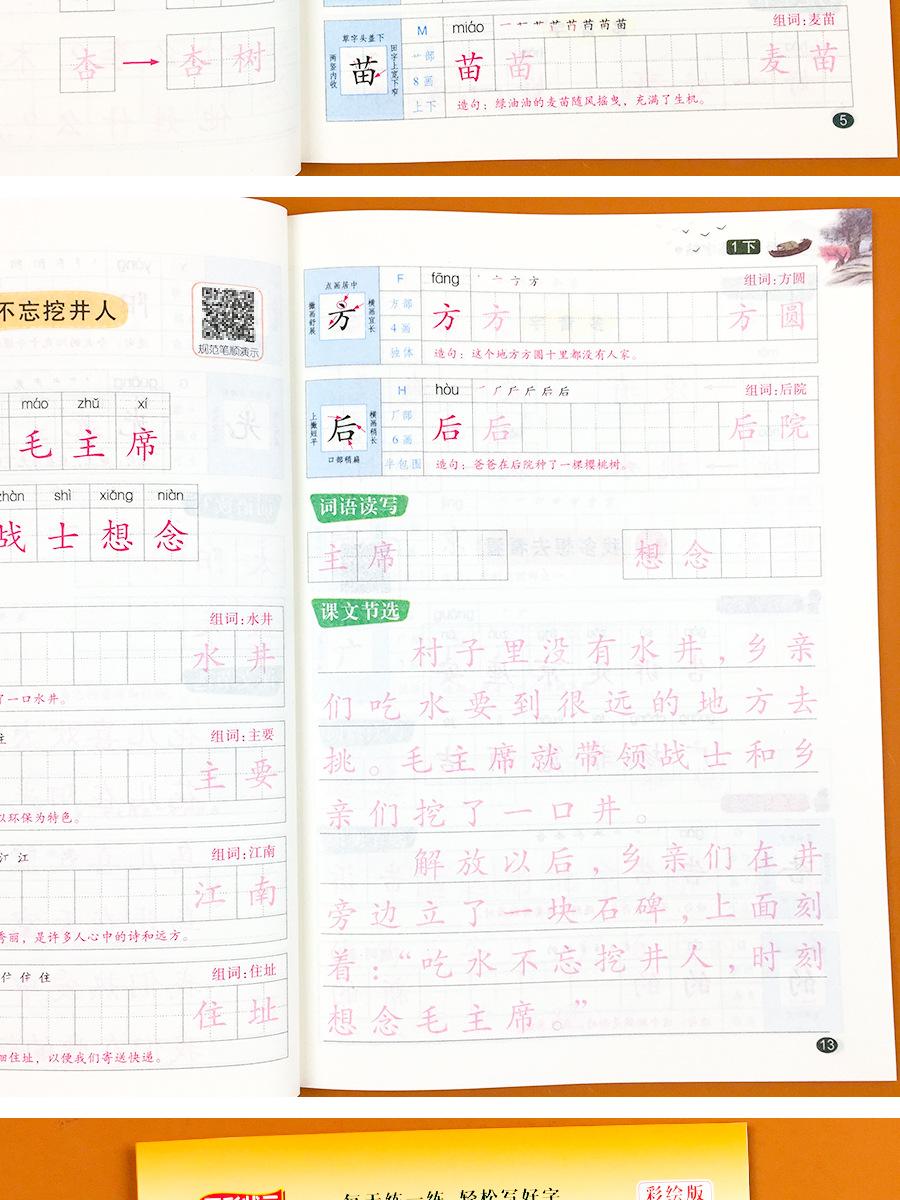 杏 杏 树
草字头盖下
两竖内收
田字上宽下窄
苗
M miáo 组词:麦苗
艹部
8画
上下
苗 苗 麦 苗
造句：绿油油的麦苗随风摇曳，充满了生机。
5
不忘挖井人
规范笔顺演示
máo zhǔ xí
毛 主 席
zhàn shì xiǎng niàn
战 士 想 念
组词:水井
水 井
了一口水井。
组词:主要
主 要
以环保为特色。
组词:江南
江 南
秀丽，是许多人心中的诗和远方。
组词:住址
住 址
细住址，以便我们寄送快递。
1下
点画居中
撇画舒展
横画宜长
方
F fāng 组词:方圆
方部
4画
独体
方 方 方 圆
造句：这个地方方圆十里都没有人家。
上撇短平
横画稍长
口部稍扁
后
H hòu 组词:后院
厂部
6画
半包围
后 后 后 院
造句：爸爸在后院种了一棵樱桃树。
词语读写
主 席 想 念
课文节选
村子里没有水井，乡亲
们吃水要到很远的地方去
挑。毛主席就带领战士和乡
亲们挖了一口井。
解放以后，乡亲们在井
旁边立了一块石碑，上面刻
着：“吃水不忘挖井人，时刻
想念毛主席。”
13
每天练一练 轻松写好字
彩绘版